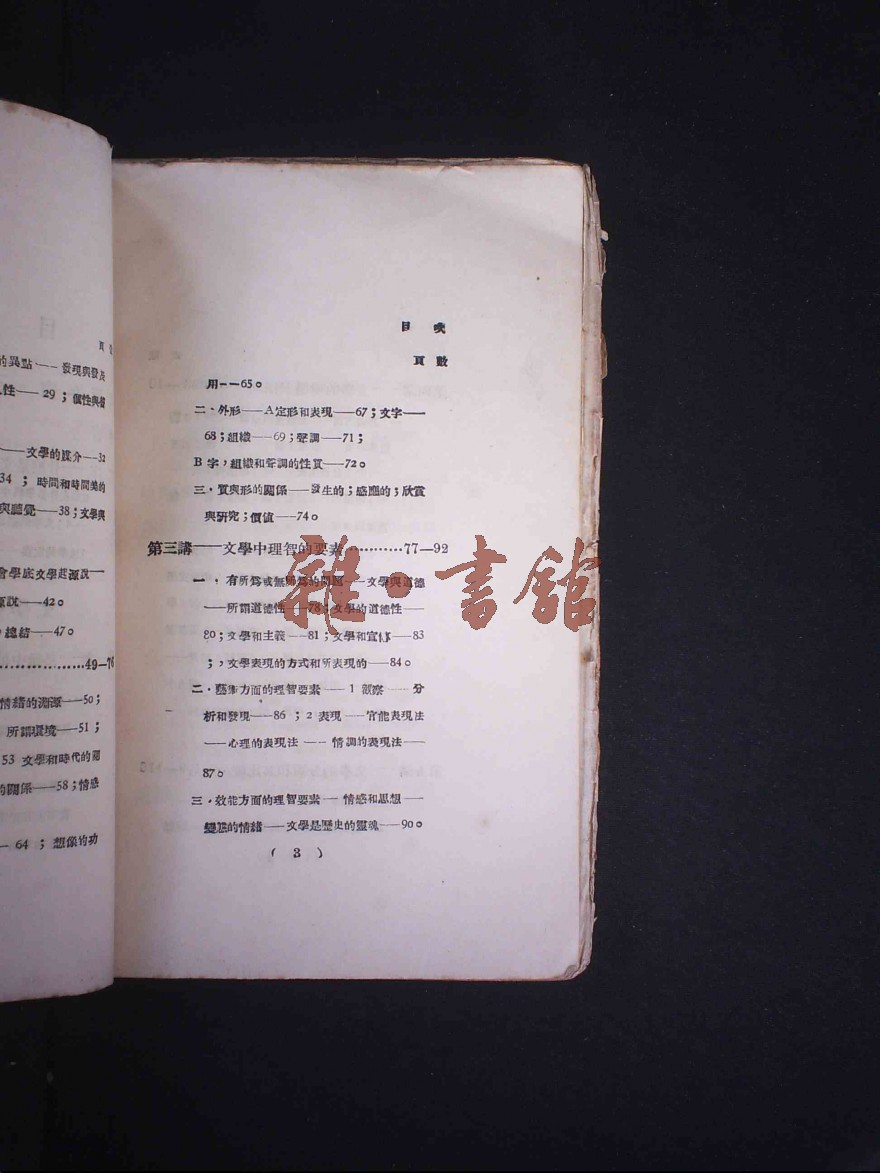 頁
的異點——發現與發展
性——29；個性與
——文學的媒介——32
34；時間和時間美的
與聽覺——38；文學與
會學底文學起源說——
源說——42。
總結——47。
……………49—76
情緒的淵源——50；
所謂環境——51；
53 文學和時代的關
的關係——58；情感
—64；想像的功
目 次
頁 數
用——65。
二·外形——A定形和表現——67；文字——
68；組織——69；聲調——71；
B字，組織和聲調的性質——72。
三·質與形的關係——發生的；感應的；欣賞
與研究；價值——74。
第三講——文學中理智的要素…………77—92
一·有所爲或無所爲的問題——文學與道德
——所謂道德性——78；文學的道德性——
80；文學和主義——81；文學和宣傳——83
；，文學表現的方式和所表現的——84。
二·藝術方面的理智要素——1觀察——分
析和發現——86；2表現——官能表現法
——心理的表現法——情調的表現法——
87。
三·效能方面的理智要素——情感和思想——
變態的情緒——文學是歷史的靈魂——90。
( 3 )
雜·書館